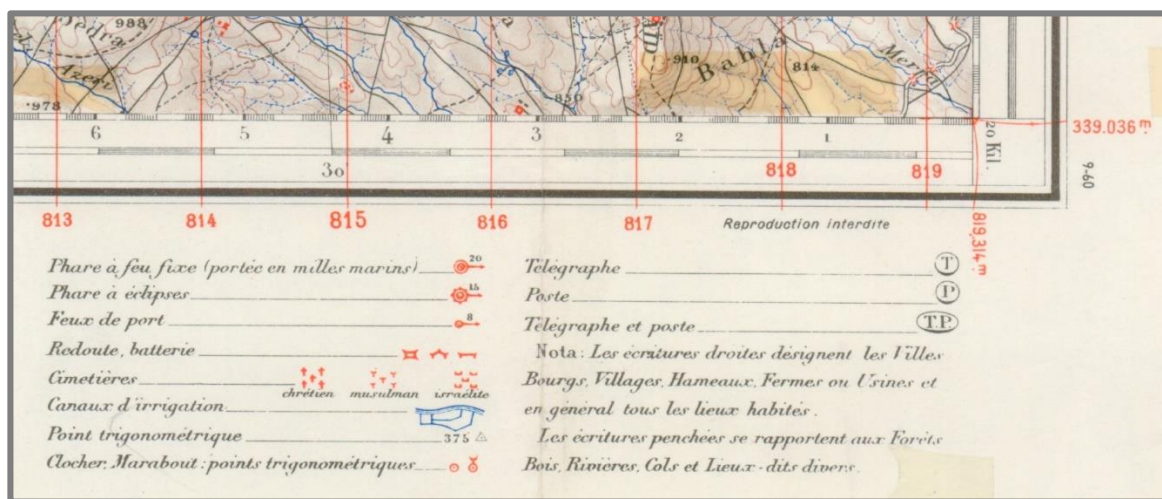 988
edra
Azerv
978
ATD
910
Bahla
814
Merra
830
6 5 4 3 2 1
20 Kil.
339.036 m.
30
818 819
9-60
813 814 815 816 817
Reproduction interdite
819,314 m
Phare à feu fixe (portée en milles marins) 20
Phare à éclipses 15
Feux de port 8
Redoute, batterie
Cimetières
chrétien musulman israëlite
Canaux d'irrigation
Point trigonométrique 375
Clocher, Marabout : points trigonométriques
Télégraphe T
Poste P
Télégraphe et poste T.P.
Nota : Les écritures droites désignent les Villes
Bourgs, Villages, Hameaux, Fermes ou Usines et
en général tous les lieux habités.
Les écritures penchées se rapportent aux Forêts
Bois, Rivières, Cols et Lieux-dits divers.